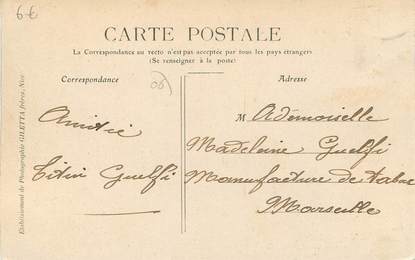 6-€
CARTE POSTALE
La Correspondance au recto n'est pas acceptée par tous les pays étrangers
(Se renseigner à la poste)
Correspondance
Adresse
06
Amitié
Titin Guelfi
M Ademoiselle
Madeleine Guelfi
Manufacture de tabac
Marseille
Etablissement de Photographie GILETTA frères, Nice